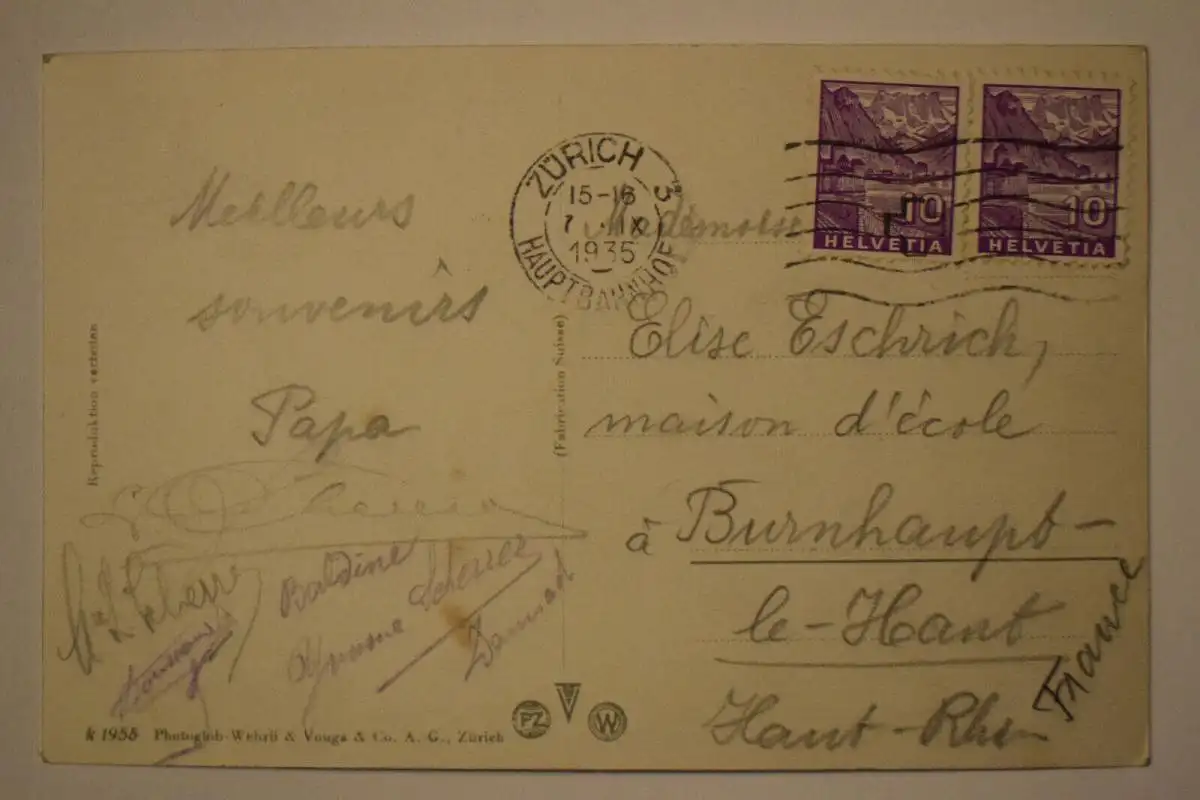 Meilleurs
souvenirs
Papa
Baldine
Yvonne Scherrer
ZÜRICH 3
15-16
7. IX
1935
HAUPTBAHNHOF
10
HELVETIA
10
HELVETIA
Mademoise
Elise Eschrich,
maison d'école
à Burnhaupt-
le-Haut
Haut-Rhin
France
Reproduktion verboten
(Fabrication Suisse)
k 1958 Photoglob-Wehrli & Vouga & Co. A. G., Zürich
PZ
V
W